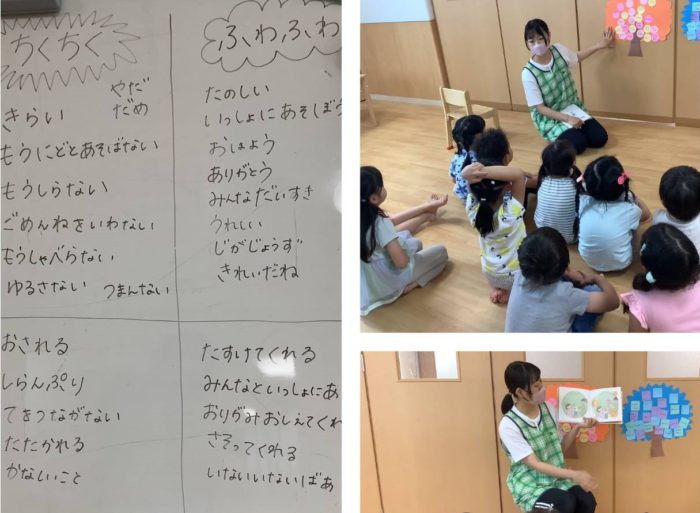 ちくちく
やだ
だめ
きらい
もうにどとあそばない
もうしらない
ごめんねをいわない
もうしゃべらない
ゆるさない つまんない
ふわふわ
たのしい
いっしょにあそぼう
おはよう
ありがとう
みんなだいすき
うれしい
じがじょうず
きれいだね
おされる
しらんぷり
てをつながない
たたかれる
かないいこと
たすけてくれる
みんなといっしょにあ
おりがみおしえてくれ
さそってくれる
いないいないばあ